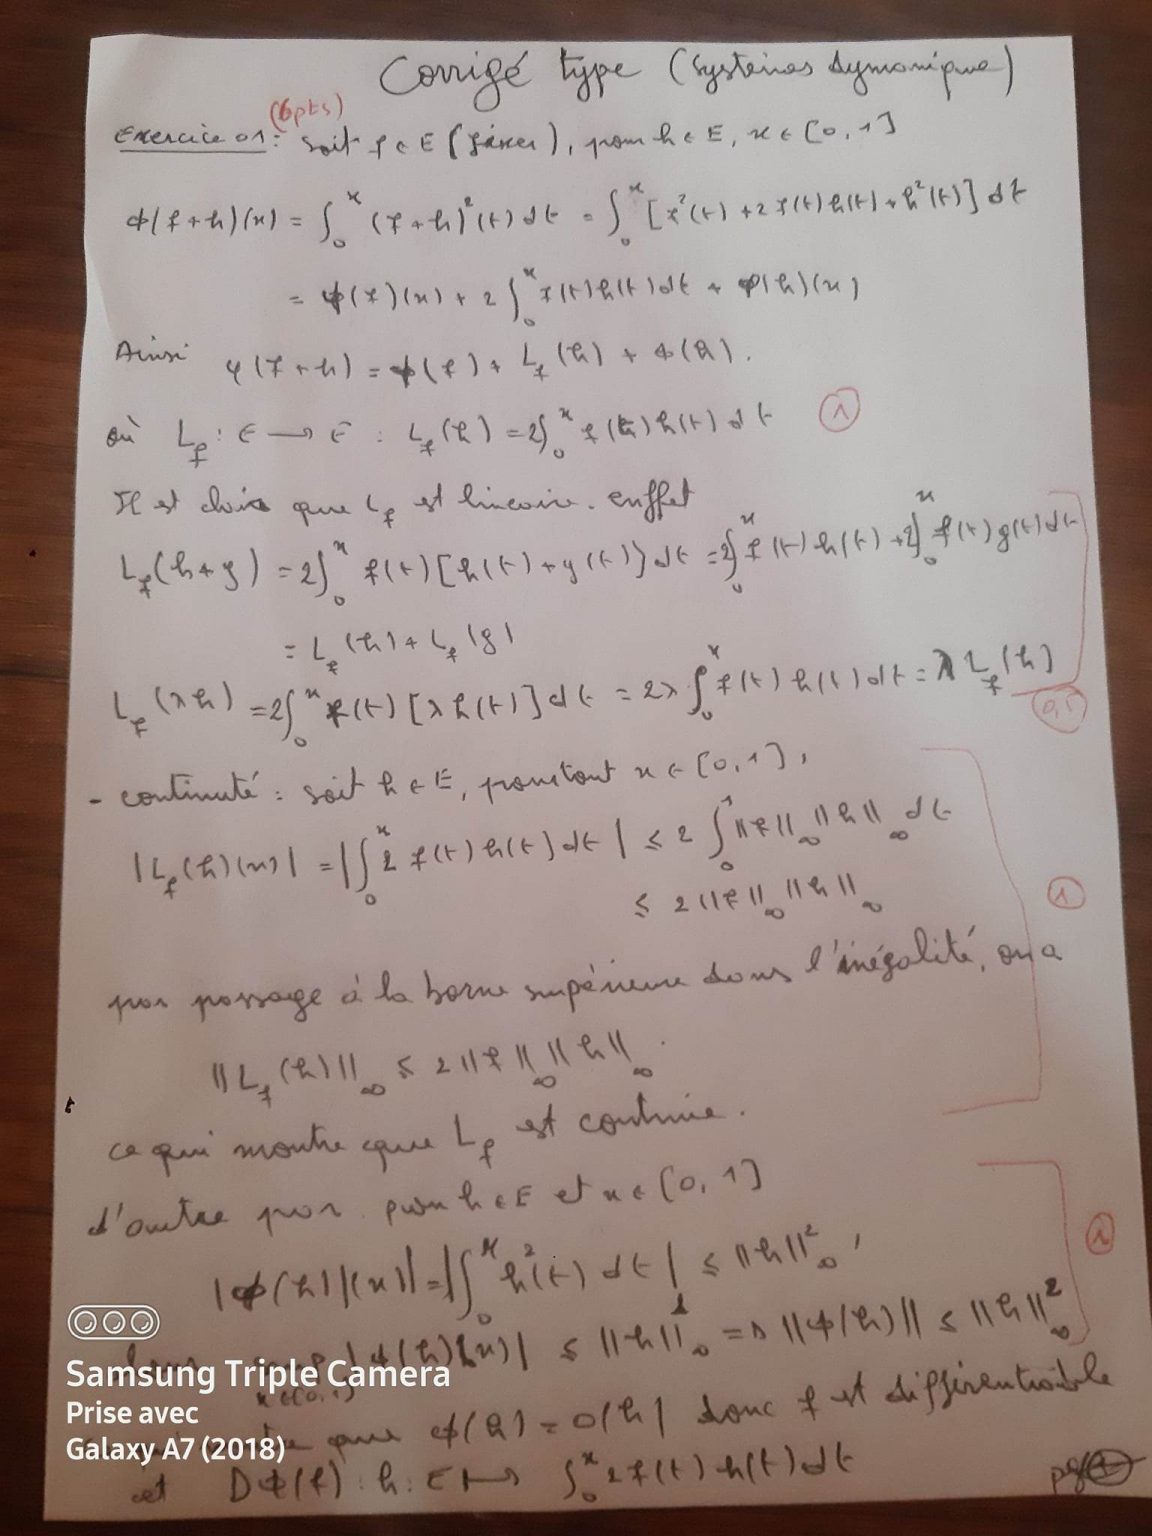 Corrigé type (Systèmes dynamique)
(6pts)
Exercice 01: soit f ∈ E (fixer), pour h ∈ E, x ∈ [0,1]
ϕ(f+h)(x) = ∫₀ˣ (f+h)²(t) dt = ∫₀ˣ [f²(t) + 2 f(t) h(t) + h²(t)] dt
= ϕ(f)(x) + 2 ∫₀ˣ f(t) h(t) dt + ϕ(h)(x)
Ainsi ϕ(f+h) = ϕ(f) + L_f(h) + ϕ(h).
où L_f : E → E : L_f(h) = 2∫₀ˣ f(t) h(t) dt (1)
Il est clair que L_f est lineaire. enffet
L_f(h+g) = 2∫₀ˣ f(t) [h(t) + g(t)] dt = 2∫₀ˣ f(t) h(t) + 2∫₀ˣ f(t) g(t) dt
= L_f(h) + L_f(g)
L_f(λh) = 2∫₀ˣ f(t) [λ h(t)] dt = 2λ ∫₀ˣ f(t) h(t) dt = λ L_f(h)
(0,5)
- continuté : soit h ∈ E, pour tout x ∈ [0,1],
|L_f(h)(x)| = |∫₀ˣ 2 f(t) h(t) dt| ≤ 2 ∫₀¹ ||f||_∞ ||h||_∞ dt
≤ 2 ||f||_∞ ||h||_∞ (1)
par passage à la borne supérieure dans l'inégalité, on a
||L_f(h)||_∞ ≤ 2 ||f||_∞ ||h||_∞.
ce qui montre que L_f est continue.
d'autre par. pour h ∈ E et x ∈ [0,1]
|ϕ(h)(x)| = |∫₀ˣ h²(t) dt| ≤ ||h||²_∞, (1)
|ϕ(h)(x)| ≤ ||h||²_∞ ⇒ ||ϕ(h)|| ≤ ||h||²_∞
x∈[0,1]
que ϕ(h) = o(h) donc f est différentiable
et Dϕ(f) : h : E ↦ ∫₀ˣ 2 f(t) h(t) dt
Samsung Triple Camera
Prise avec
Galaxy A7 (2018)